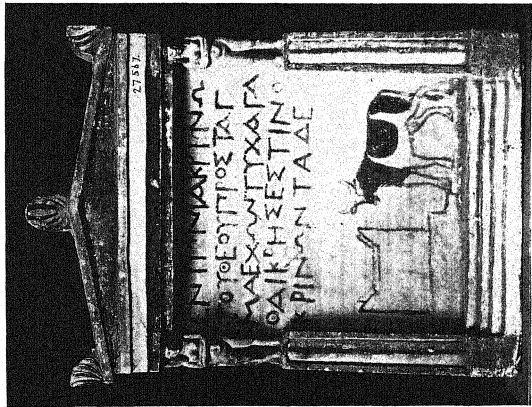 27567
ΝΥΠΝΙΑΚΡΙΝΩ
ΟΥΘΕΟΥΠΡΟΣΤΑΓ
ΜΑΕΧΩΝΤΥΧΑΓΑ
ΘΑΙΚΡΗΣΕΣΤΙΝΟ
ΚΡΙΝΩΝΤΑΔΕ